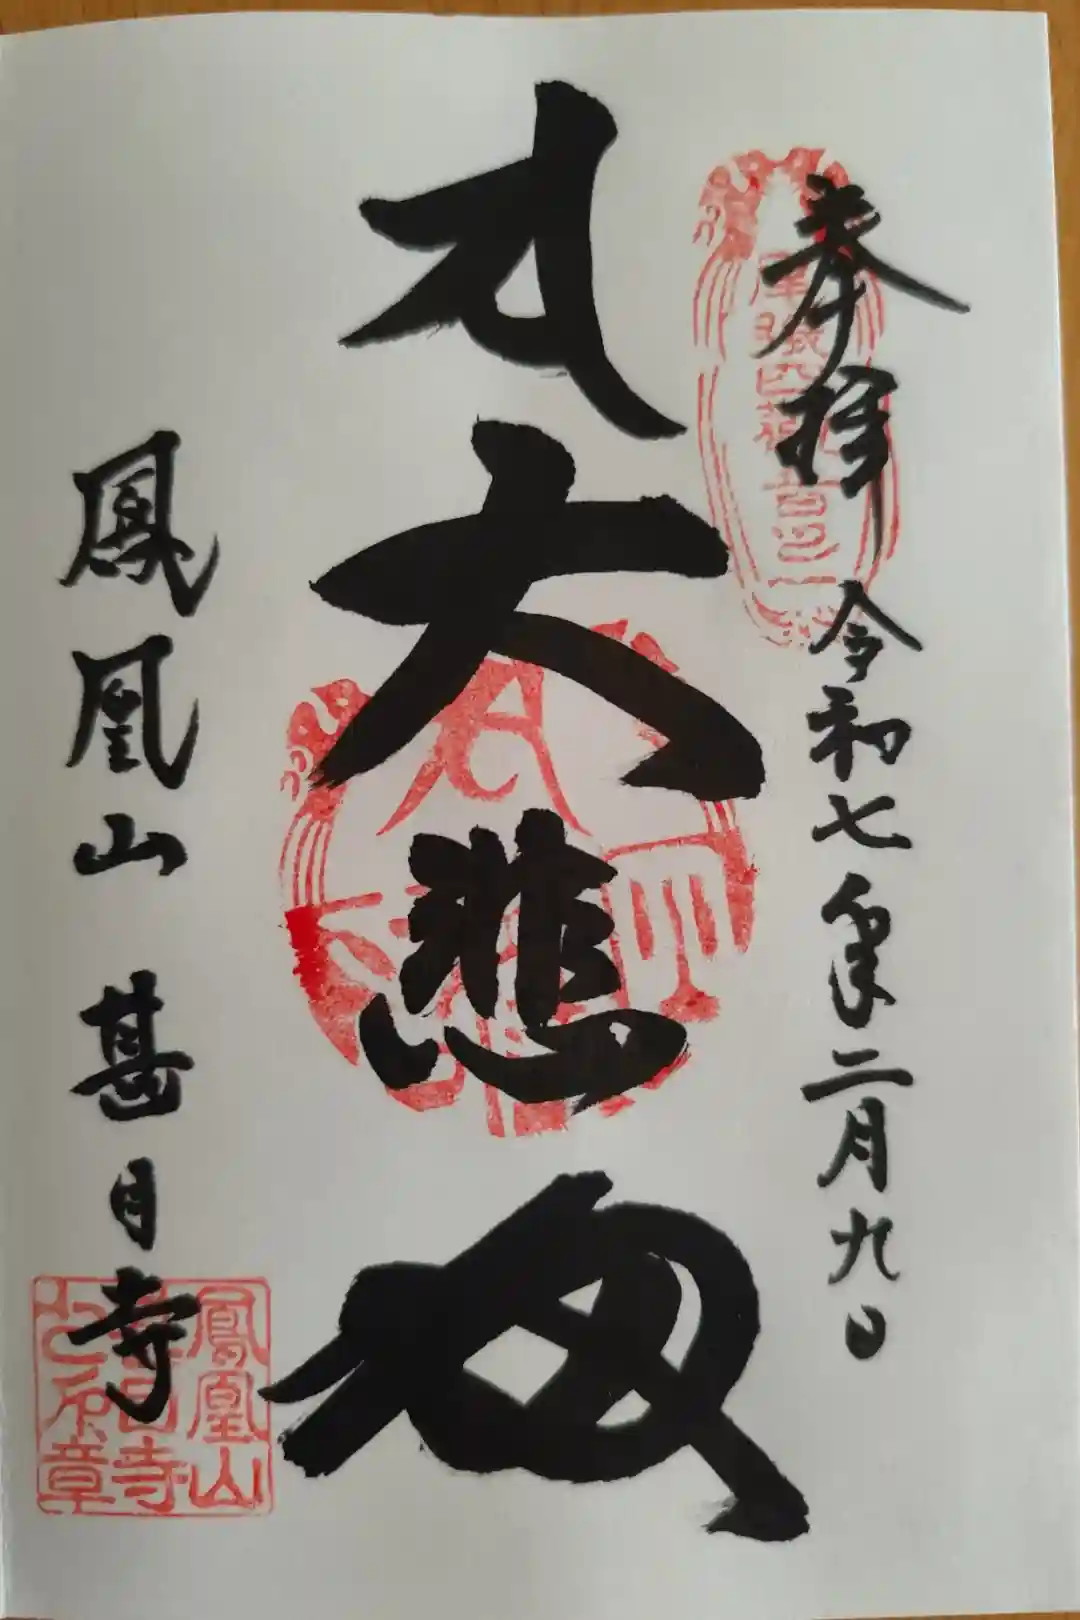 奉拝 令和七年二月九日
大悲殿
鳳凰山 甚目寺
鳳凰山
甚目寺
之印章